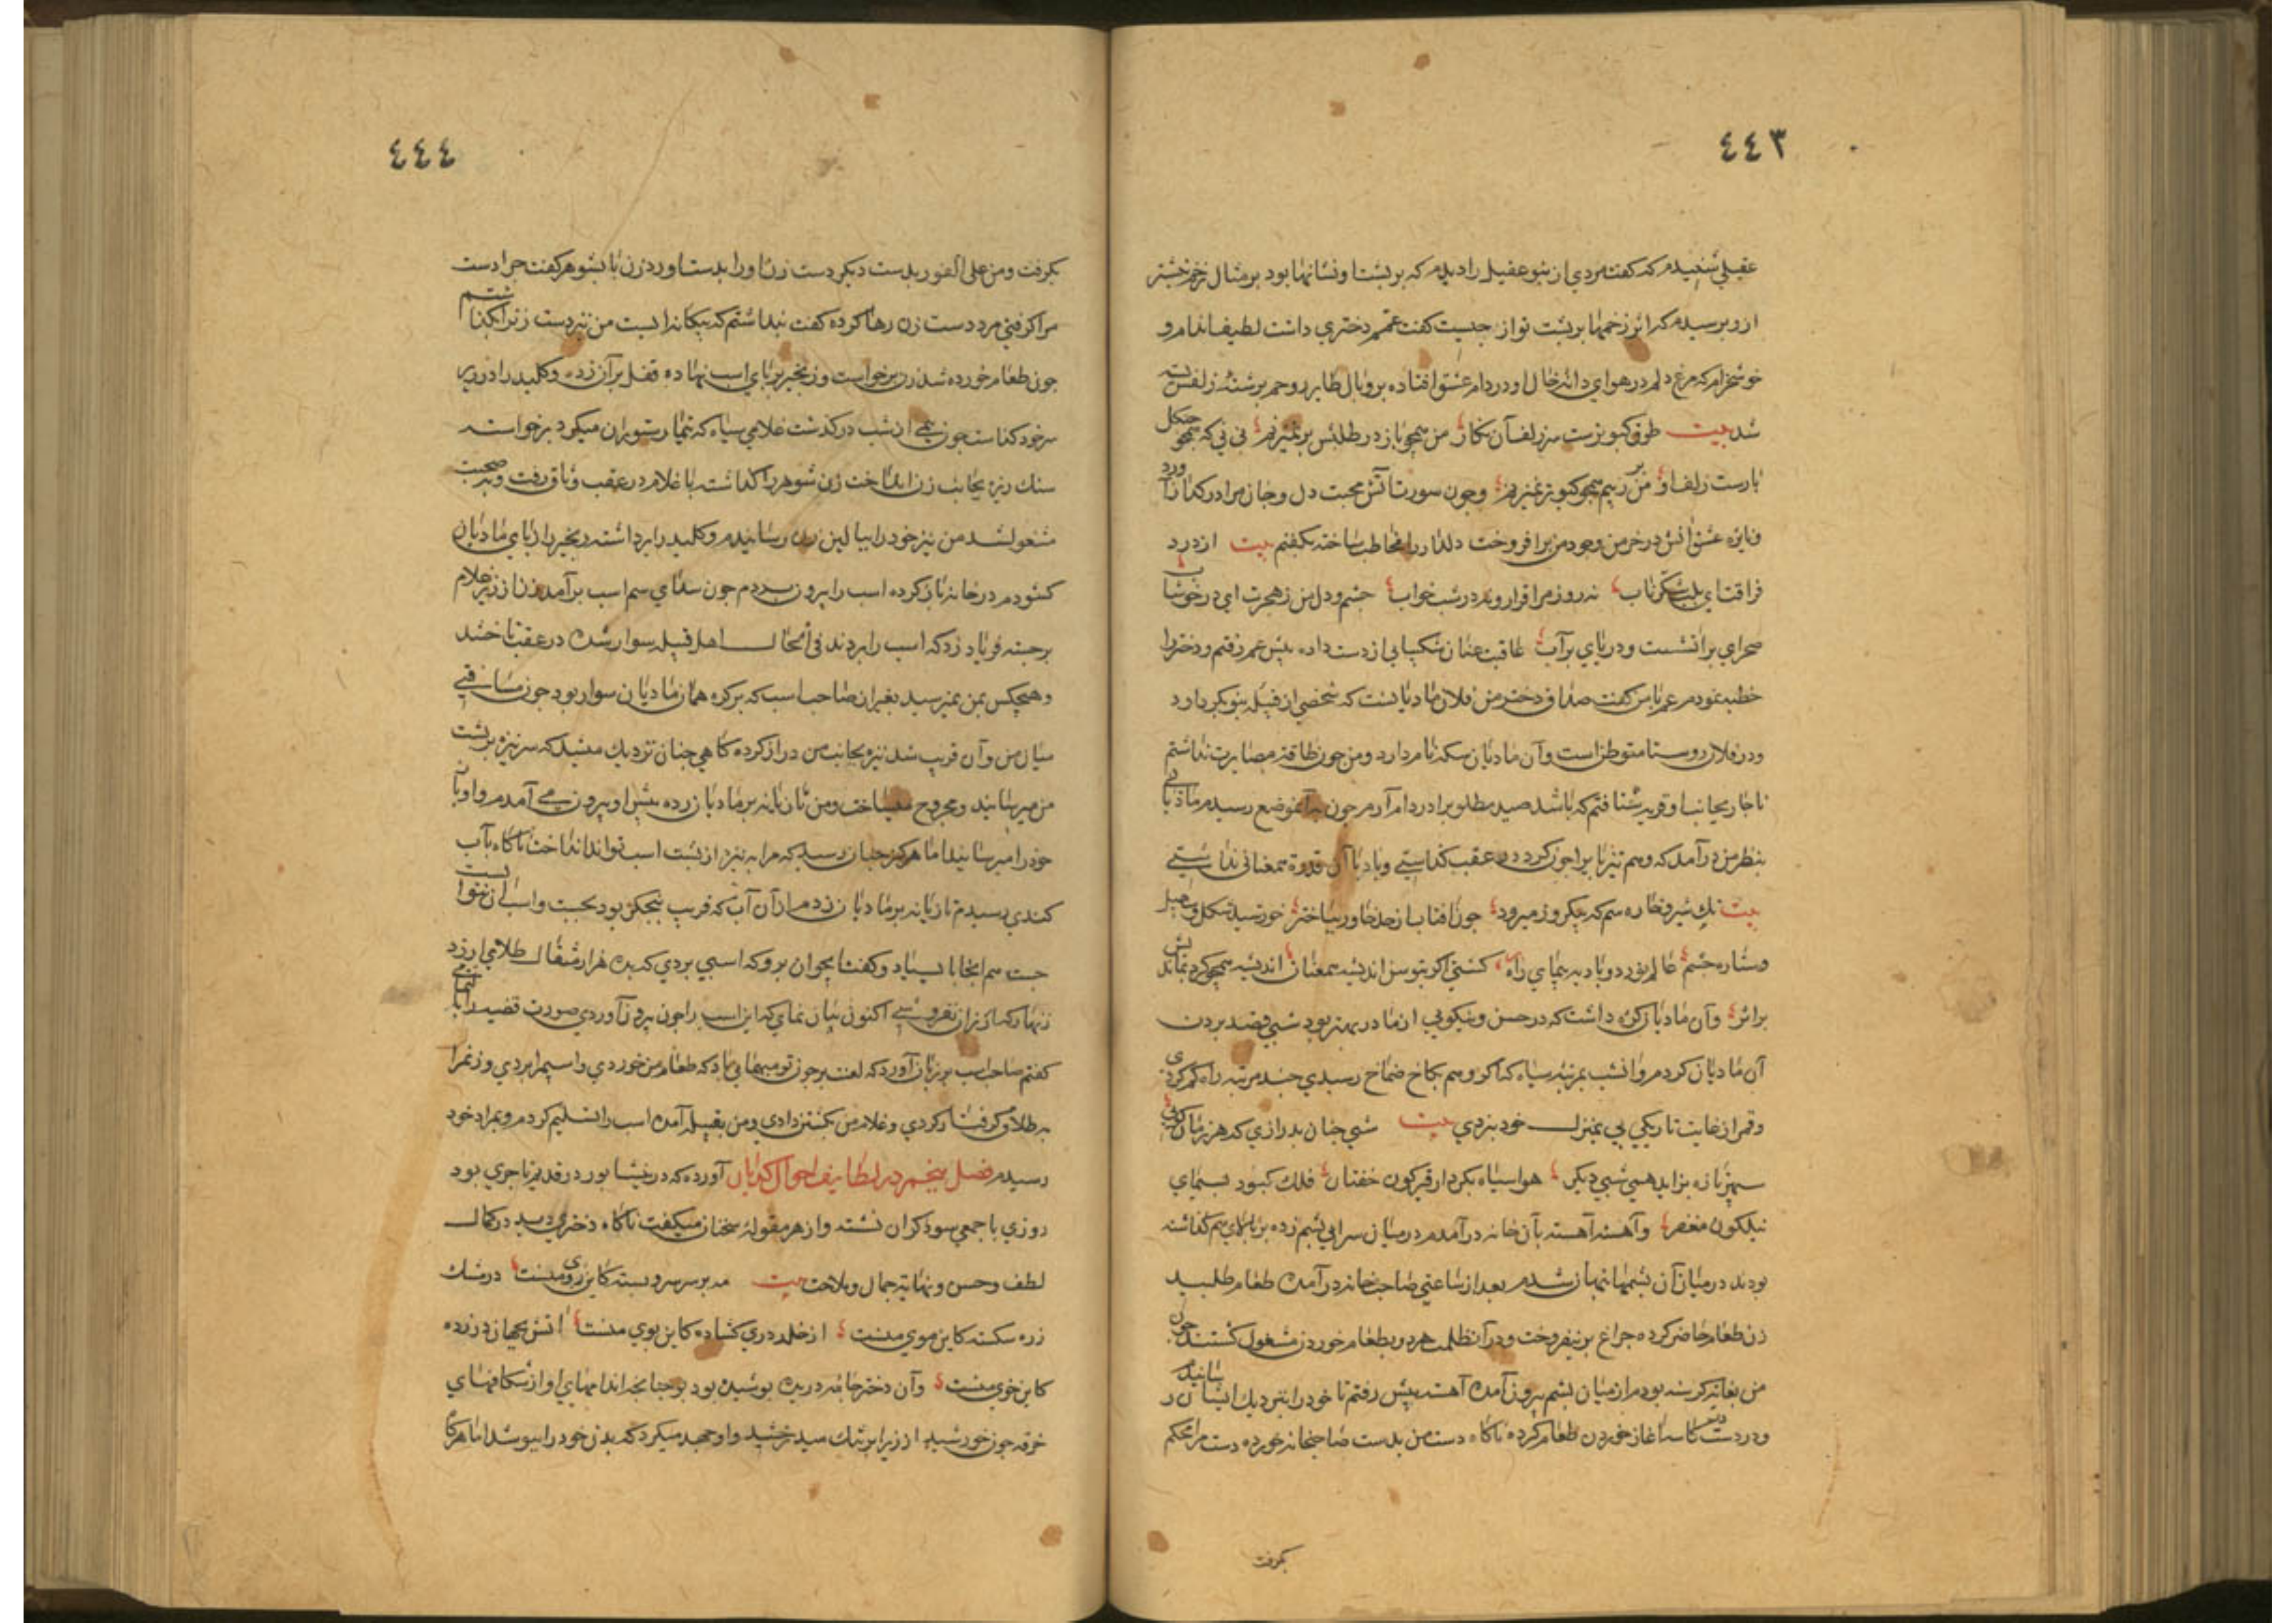 ٤٤٣
عقیلی شنیدم که گفت مردی از بنو عقیل را دیدم که بر پشت او نشانها بود بر مثال زخم نیشتر
ازو پرسیدم که اثر زخمها بر پشت تو از چیست گفت عمم دختری داشت لطیف اندام و
خوشخرام که مرغ دلم در هوای دانه خال او در دام عشق افتاده بر و بال طایر روحم برشته زلفش بسته
شد بیت طوق کبوترست سر زلف آن نکار من همچو باز در طلبش بر نمیزنم نی نی که همچو چنکل
بازست زلف او من بر بیم همچو کبوتر نمیزنم و چون سورت آتش محبت دل و جان مرا در کداز آورد
و نایره عشق آتش در خرمن وجود من برافروخت دلدار را مخاطب ساخته بگفتم بیت از درد
فراقت ای بلب شکر ناب نه روز مرا قرار و نه در شب خواب چشم و دل من ز هجرت ای در خوشاب
صحرای پر آتشست و دریای پر آب عاقبت عنان شکیبایی از دست داده پیش عم رفتم و دختر را
خطبه نمودم عم با من گفت صداق دختر من فلان مادیانست که شخصی از قبیله بنو بکر دارد
و در فلان روستا متوطن است و آن مادیان سکه نام دارد و من چون طاقت مصابرت نداشتم
ناچار بجانب او قریه شتافتم که باشد صید مطلوب را در دام آرم چون بدانموضع رسیدم مادیانی
بنظر من درآمد که وهم تیز پا براجون کرد در عقب کذاشتی و باد با آن قدوة همعنانی نداشتی
بیت تک شیر و خاره سم که بیکروز میرود چون آفتاب از حد خاور بباختر خورشید شکل و صیل
و ستاره چشم عالم نورد و باد پیمای راه کشتی اکر بتوسن اندیشه همعنان اندیشه همچو کرد بماندیش
بر اثر و آن مادیان کره داشت که در حسن و نیکویی از مادر بهتر بود شبی قصد بردن
آن مادیان کردم و آنشب بمرتبه سیاه که اکر وهم بکاخ ضماخ رسیدی چند مرتبه راه کم کردی
و قمر از غایت تاریکی پی بمنزل خود نبردی بیت شبی چنان بدرازی که هر زمان کویی
سپهر تازه بزاید همی شبی دیکر هوا سیاه بکردار قیرکون خفتان فلک کبود بسیمای
نیلکون مغفر و آهسته آهسته بآن خانه درآمدم در میان سرایی پشم زده بر بالای هم کذاشته
بودند در میان آن پشمها نهان شدم بعد از ساعتی صاحب خانه درآمده طعام طلبید
زن طعام حاضر کرده چراغ بر نیفروخت و در آن ظلمت هر دو بطعام خوردن مشغول کشتند چون
من بغایت کرسنه بودم از میان پشم بیرون آمده آهسته پیش رفتم تا خود را بنزدیک ایشان رسانیدم
و دردست کاسه آغاز خوردن طعام کرده ناکاه دست من بدست صاحبخانه خورده دست مرا محکم
بکرفت
٤٤٤
بکرفت و من علی الفور بدست دیکر دست زن او را بدست آورد زن با شوهر گفت چرا دست
مرا کرفتی مرد دست زن رها کرده گفت پنداشتم که بیکانه است من نیز دست زنرا بکذاشتم
چون طعام خورده شد زن برخواست و زنجیر بر پای اسب نهاده قفل بر آن زده و کلید را در زیر
سر خود کذاشت چون نیمی از شب درکذشت غلامی سیاه که تیمار ستوران میکرد برخواست
سنک ریزه بجانب زن انداخت زن شوهر را کذاشته با غلام در عقب وثاق رفت و بصحبت
مشغول شد من نیز خود را ببالین زن رسانیدم و کلید را برداشته زنجیر را از پای مادیان
کشودم در خانه باز کرده اسب را بیرون بردم چون صدای سم اسب برآمد زن از زیر غلام
برجسته فریاد زد که اسب را بردند فی الحال اهل قبیله سوار شده در عقب تاختند
و هیچکس بمن نمیرسید بغیر از صاحب اسب که بر کره همان مادیان سوار بود چون مسافتی
میان من و آن قریب شد نیزه بجانب من دراز کرده کاهی چنان نزدیک میشد که سر نیزه بر پشت
من میرسانید و مجروح میساخت و من تازیانه بر مادیان زده پیش او بیرون می آمدم و او باز
خود را میرسانید اما هرکز چنان نرسید که مرا به نیزه از پشت اسب تواند انداخت ناکاه بآب
کندی رسیدم تازیانه بر مادیان زدم از آن آب که قریب پنجکز بود بجست و اسب او نتوانست
جست هم آنجا باستاد و گفت ایجوان برو که اسبی بردی که بده هزار مثقال طلا می ارزد
زنهار که ارزان نفروشی اکنون بیان نمای که این اسب را چون بیرون آوردی صورت قضیه را بتمامی
گفتم صاحب اسب بر زبان آورد که لعنت بر چون تو میهمانی باد که طعام من خوردی و اسبم را بردی و زنمرا
بطلاق کرفتار کردی و غلام من بکشتن دادی و من بقبیله آمده اسب را تسلیم کردم و بمراد خود
رسیدم فصل پنجم در لطایف احوال کدایان آورده که در نیشابور در قدیم تاجری بود
روزی با جمعی سوداکران نشسته و از هر مقوله سخنان میکفت ناکاه دختری دید در کمال
لطف و حسن و نهایت جمال و ملاحت بیت مه بر سر سرو بسته کاین روی منست در مشک
زره سکسته کاین موی منست از خلد دری کشاده کاین بوی منست آتش بجهان در زده
کاین خوی منست و آن دختر جامه دریده پوشیده بود چنانچه اندامهای او از شکافهای
خرقه چون خورشید از زیر ابر تنک میدرخشید و او جهد میکرد که بدن خود را بپوشد اما هرکاه